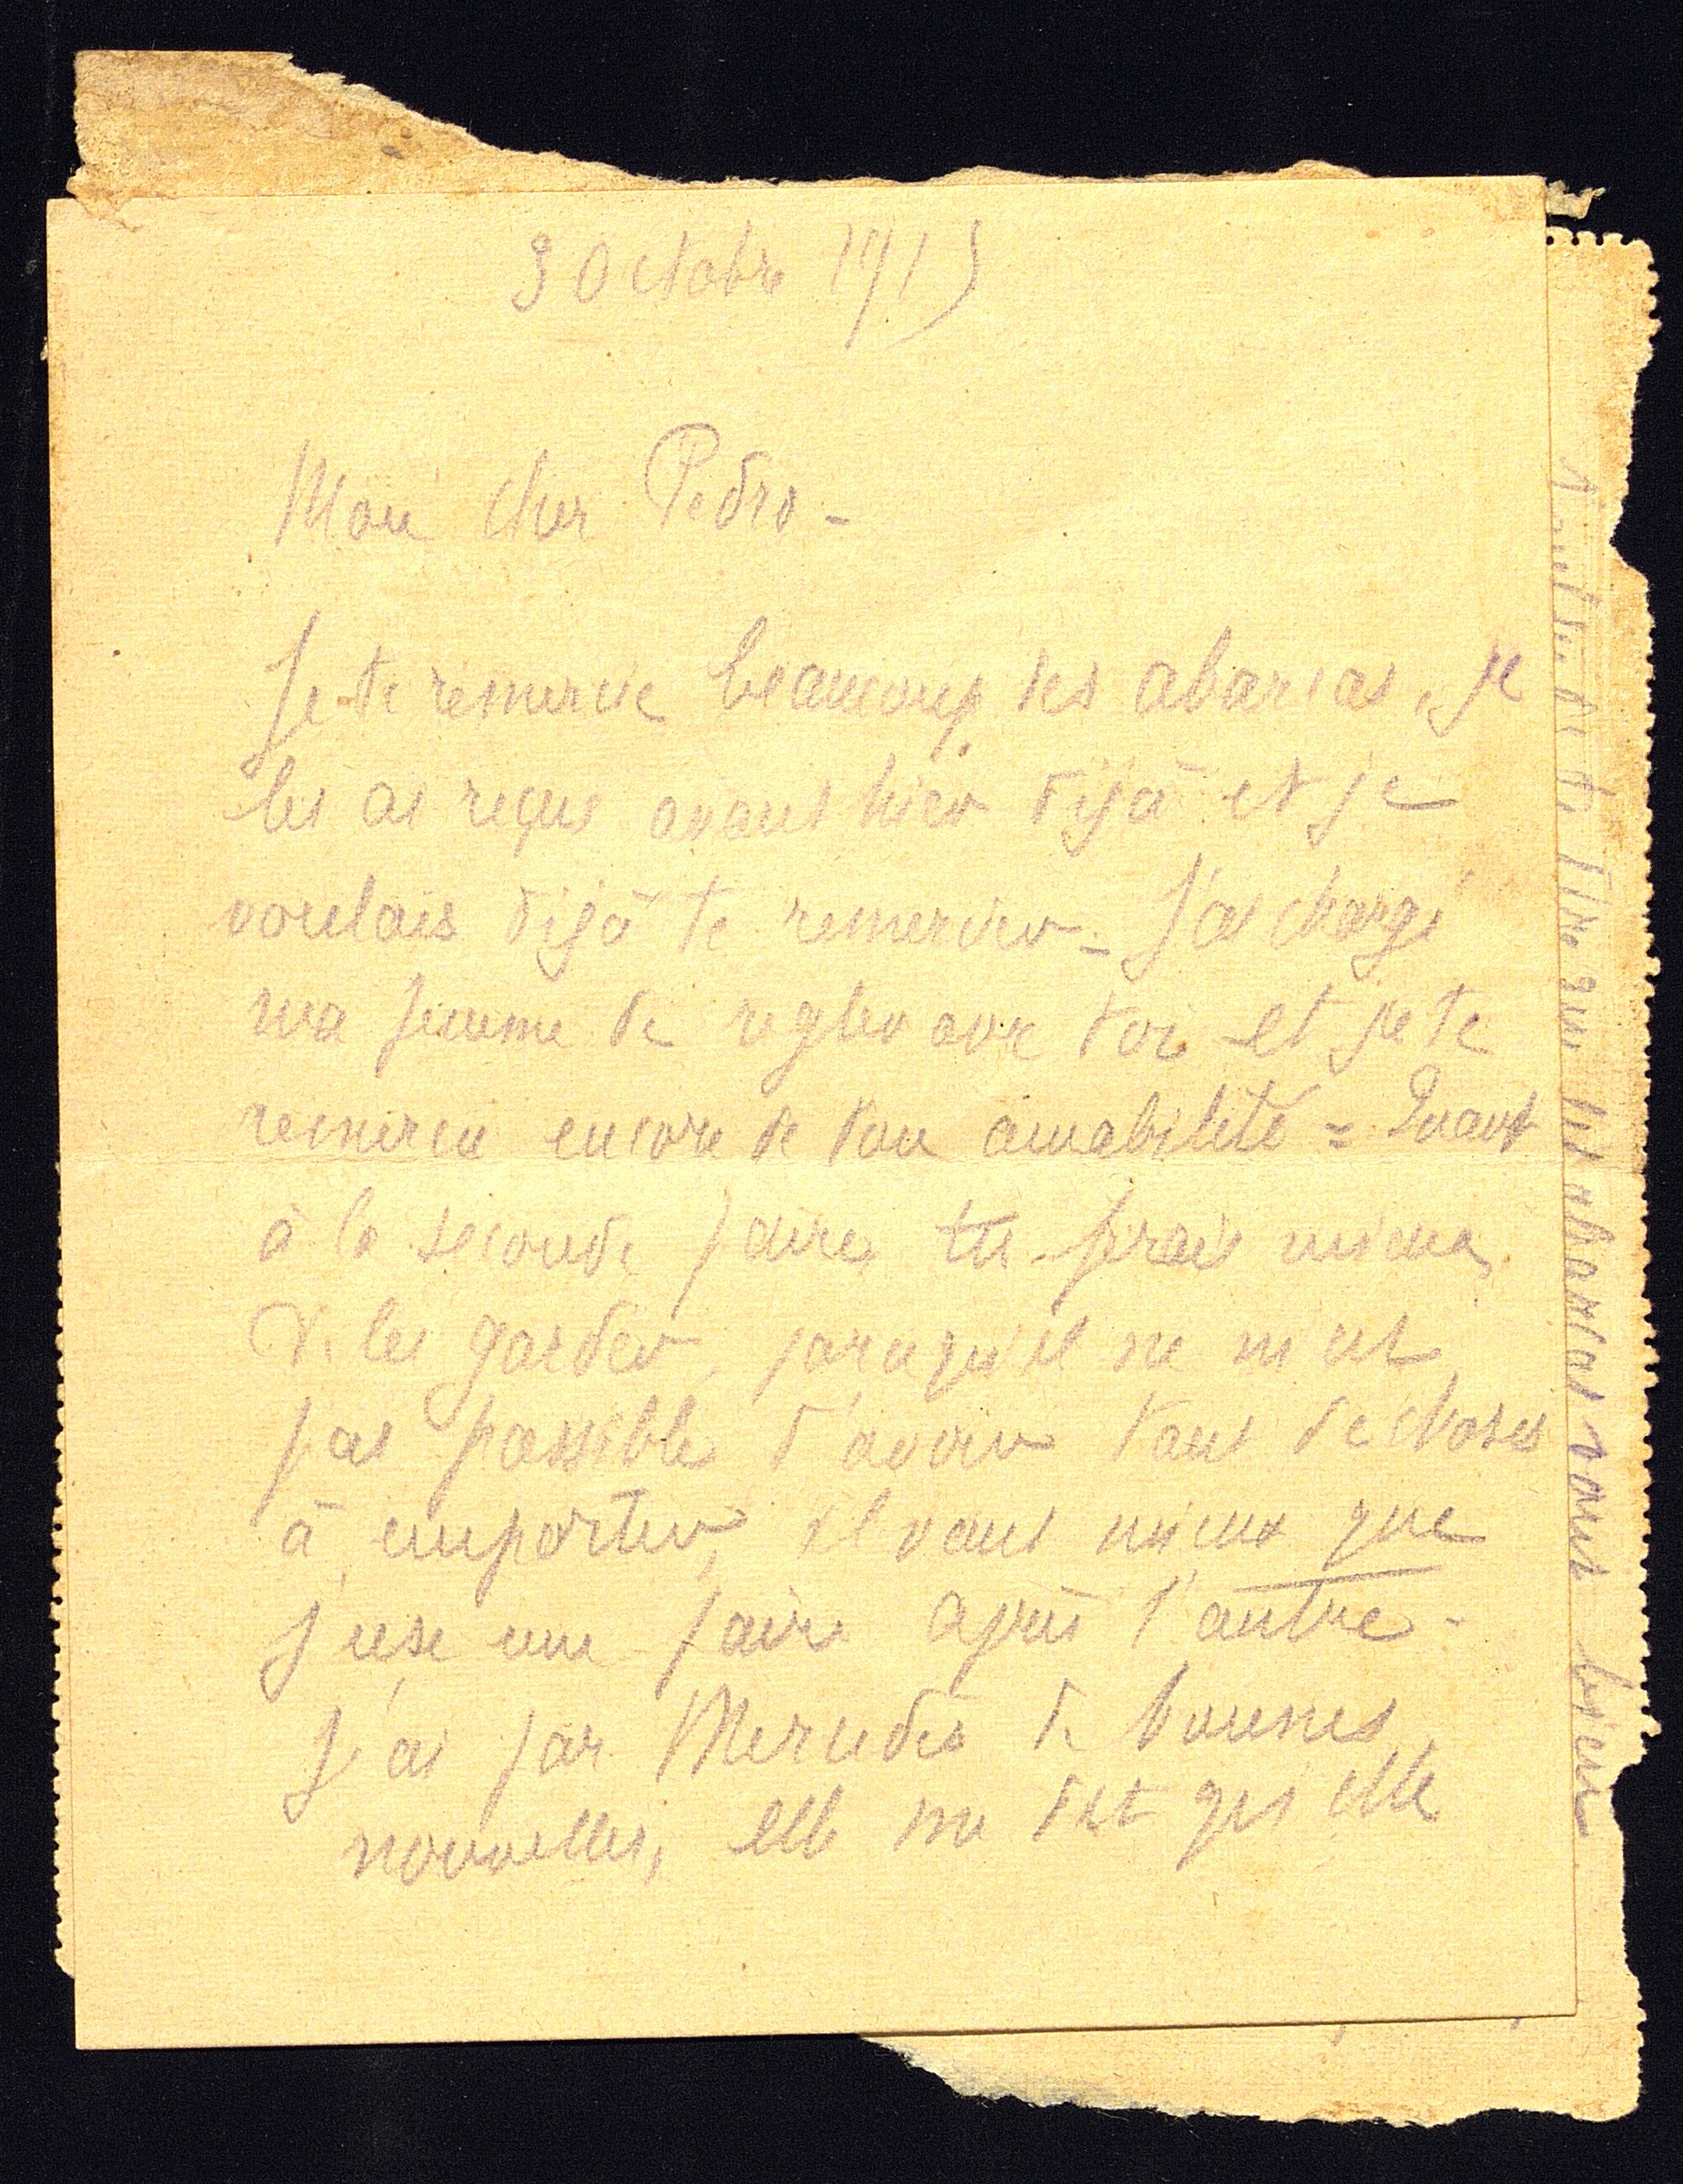 9 Octobre 1915
Mon cher Pedro -
Je te remercie beaucoup des abarcas, je
les ai reçus avant hier déjà et je
voulais déjà te remercier - J'ai chargé
ma femme de regler avec toi et je te
remercie encore de ton amabilité = Quant
à la seconde paire, tu ferais mieux
de les garder, parcequ'il ne m'est
pas possible d'avoir tant de choses
à emporter, il vaut mieux que
j'use une paire après l'autre -
J'ai par Mercedes de bonnes
nouvelles, elle me dit qu'elle
que les abarcas vont bien